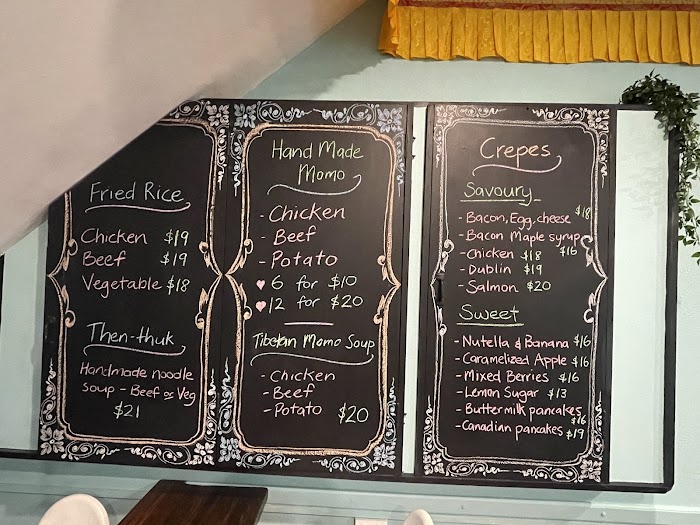 Fried Rice
Chicken $19
Beef $19
Vegetable $18
Then-thuk
Handmade noodle
soup - Beef or Veg
$21
Hand Made
Momo
- Chicken
- Beef
- Potato
♥ 6 for $10
♥ 12 for $20
Tibetan Momo Soup
- Chicken
- Beef
- Potato $20
Crepes
Savoury
- Bacon, Egg, cheese $18
- Bacon Maple syrup $16
- Chicken $18
- Dublin $19
- Salmon $20
Sweet
- Nutella & Banana $16
- Caramelized Apple $16
- Mixed Berries $16
- Lemon Sugar $13
- Buttermilk pancakes $16
- Canadian pancakes $19